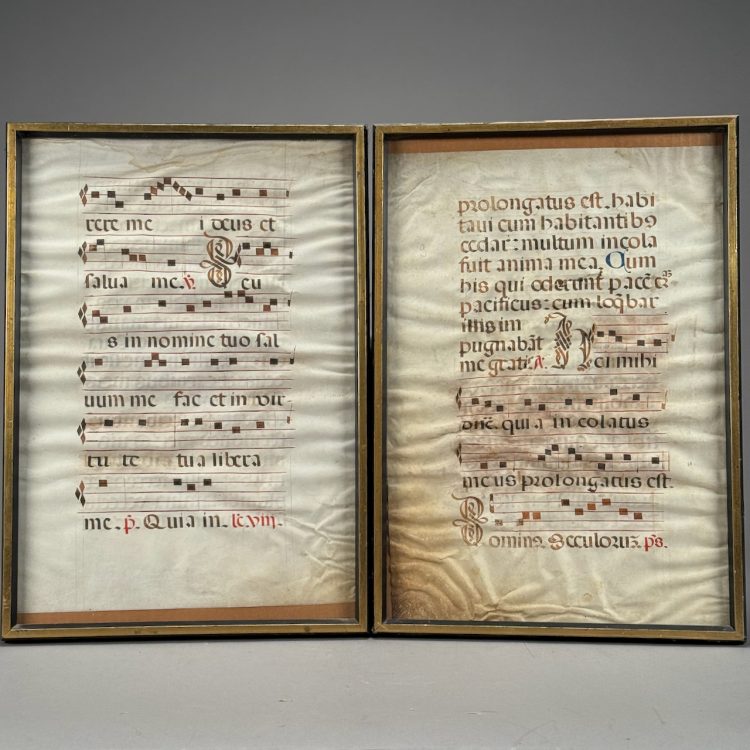 rere me i deus et
salua me. ℣. D eu
s in nomine tuo sal
uum me fac et in vir
tu te tua libera
me. p̄. Quia in. lc̄. viii.
prolongatus est. habi
taui cum habitantib9
cedar: multum incola
fuit anima mea. Cum
his qui oderunt pacē erā
pacificus: cum loq̄bar
illis im
pugnabāt
me gratis. A. H ei mihi
dn̄e. quia in colatus
me us prolongatus est.
D omine. Seculorum. p̄s.